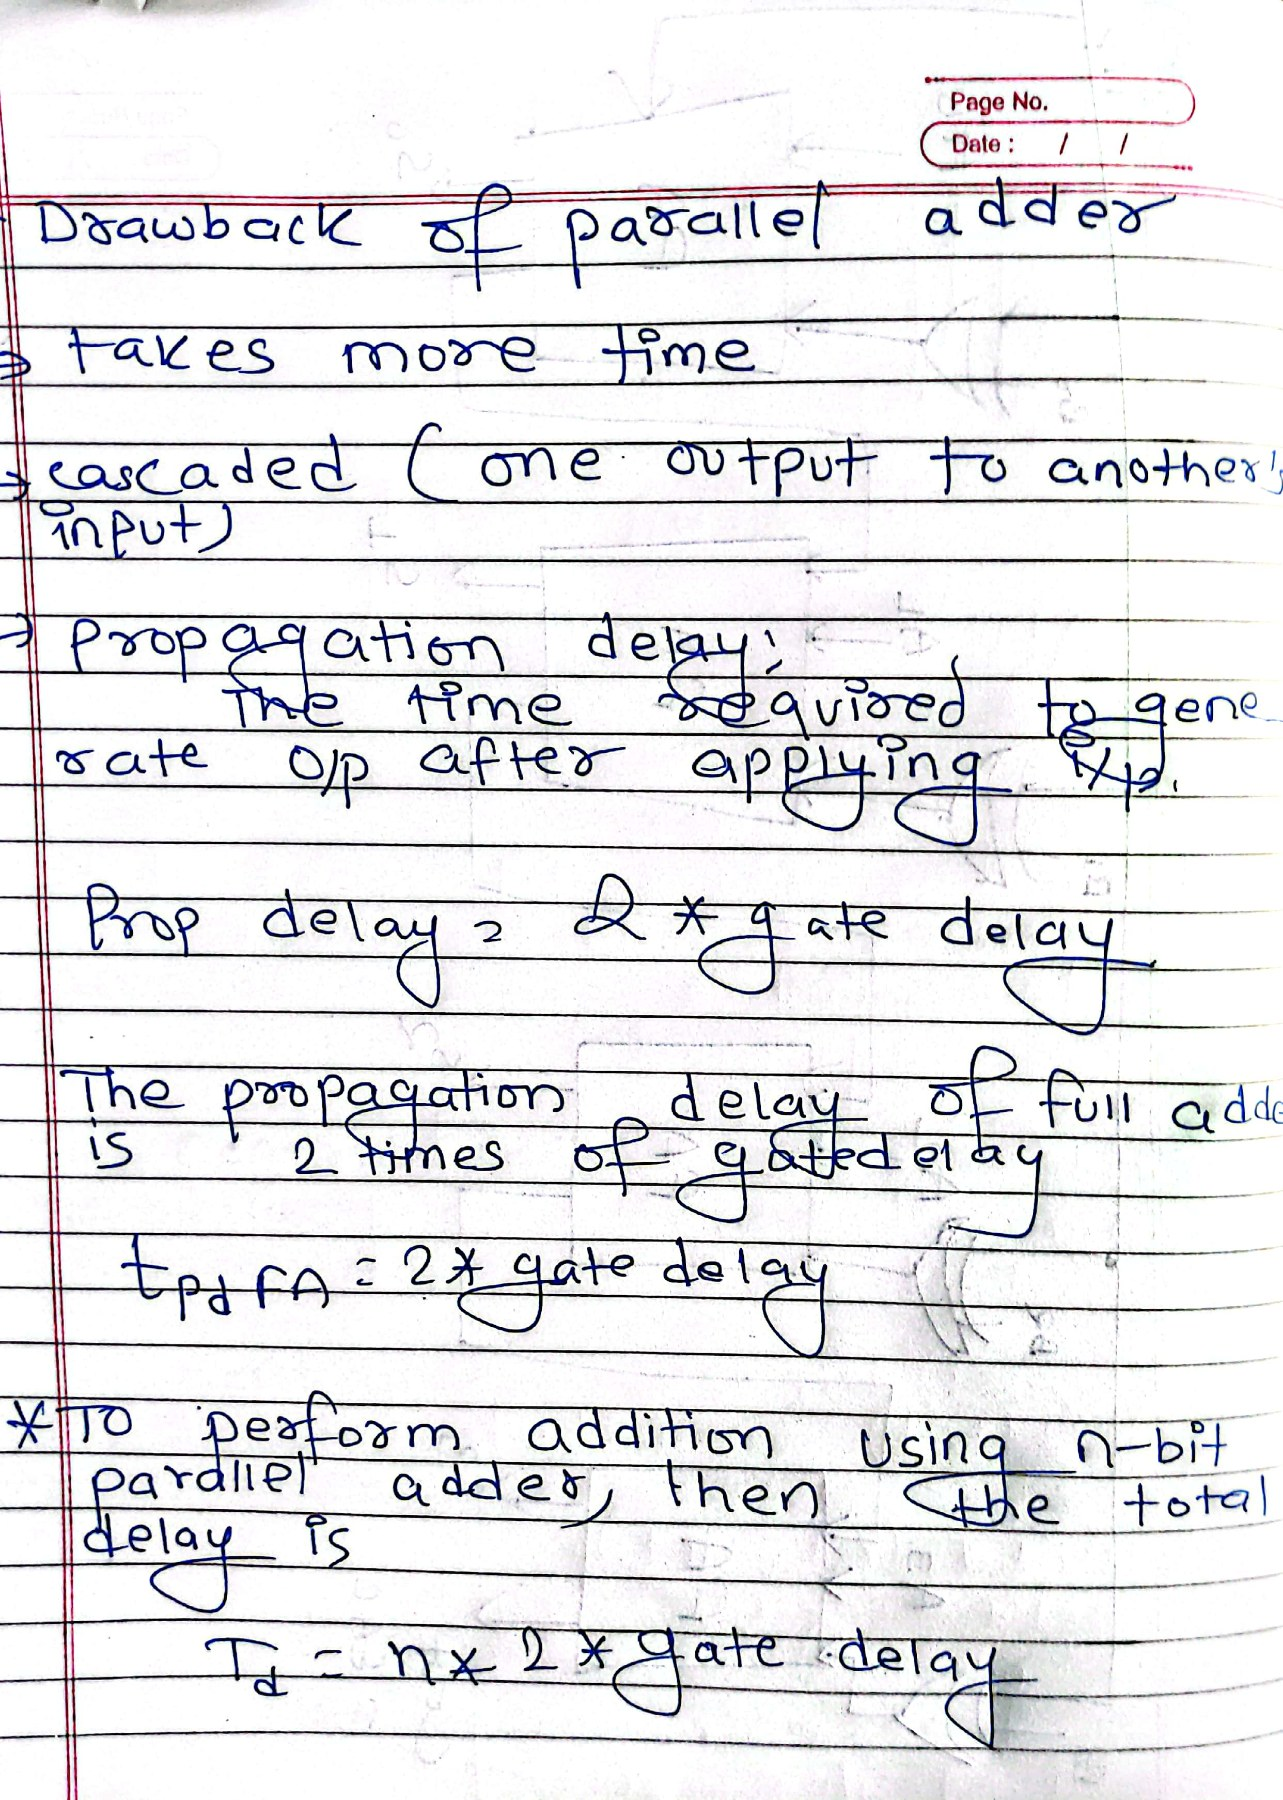 Page No.
Date : / /
Drawback of parallel adder
⇒ takes more time
→ cascaded (one output to another's
input)
→ propagation delay:
The time required to gene
rate o/p after applying i/p.
Prop delay = 2 * gate delay
The propagation delay of full adde
is 2 times of gatedelay
tpd FA = 2* gate delay
* To perform addition using n-bit
parallel adder, then the total
delay is
Td = n* 2 * gate delay